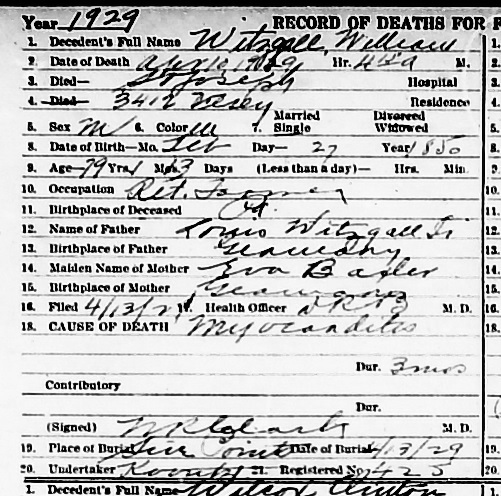 Year 1929 RECORD OF DEATHS FOR F
1. Decedent's Full Name Witzgall, William 1.
2. Date of Death Apr 10, 1929 Hr. M. 2.
3. Died— St Joseph Hospital 3.
4. Died— 3412 Residence 4.
Married Divorced
5. Sex M 6. Color W 7. Single Widowed 5.
8. Date of Birth—Mo. Feb Day— 27 Year 1850 8.
9. Age— 79 Yrs. 1 Mos. 13 Days (Less than a day)— Hrs. Min. 9.
10. Occupation Ret. Farmer 10.
11. Birthplace of Deceased 11.
12. Name of Father Louis Witzgall Sr 12.
13. Birthplace of Father Germany 13.
14. Maiden Name of Mother Eva 14.
15. Birthplace of Mother Germany 15.
16. Filed 4/13/29 17. Health Officer M. D. 16.
18. CAUSE OF DEATH Myocarditis 18.
Dur. 3 mos
Contributory
Dur.
(Signed) M. D.
19. Place of Burial Five Points Date of Burial 4/13/29 19.
20. Undertaker 21. Registered No. 425 20.
1. Decedent's Full Name Wilcox, Clinton 1.